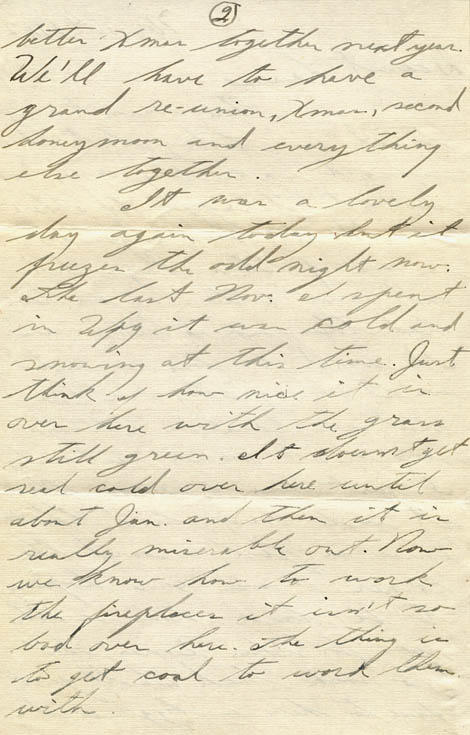 2
better Xmas together next year.
We'll have to have a
grand re-union, Xmas, second
honeymoon and everything
else together.
It was a lovely
day again today but it
freezes the odd night now.
The last Nov. I spent
in Wpg it was cold and
snowing at this time. Just
think of how nice it is
over here with the grass
still green. It doesn't get
real cold over here until
about Jan. and then it is
really miserable out. Now
we know how to work
the fireplaces it isn't so
bad over here. The thing is
to get coal to work them
with.